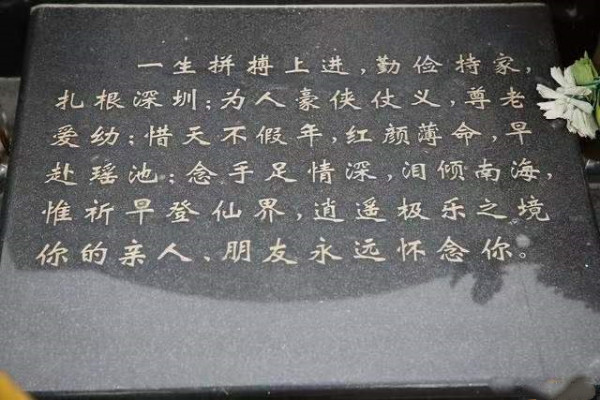 一生拼搏上进,勤俭持家,
扎根深圳;为人豪侠仗义,尊老
爱幼;惜天不假年,红颜薄命,早
赴瑶池;念手足情深,泪倾南海,
惟祈早登仙界,逍遥极乐之境
你的亲人、朋友永远怀念你。